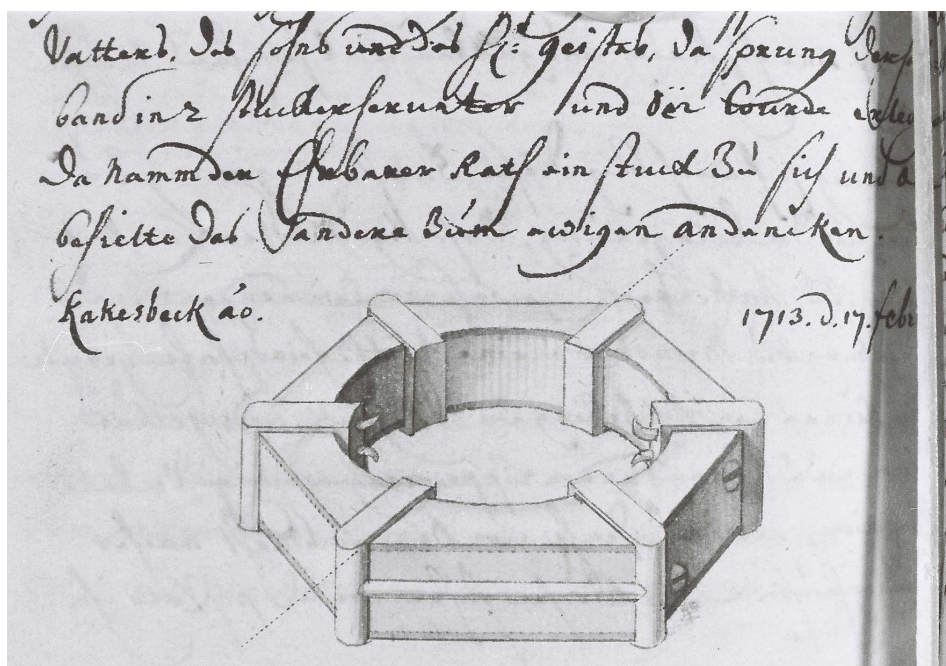 Vatters, des sohns und des H: geistes, da sprung ders
band in 2 stucker herunter und die wurde
Da namm der Ehrbarer Rath ein stuck zu sich und
behielte das andere zum ewigen andencken.
Kakesbeck ao. 1713. d. 17. febr